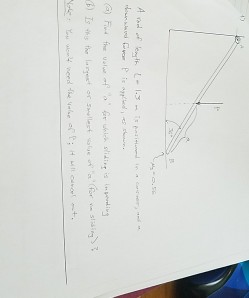 1)
A rod of length L = 1.5 m is positioned in a corner, and a
downward force P is applied as shown.
(a) Find the value of "a" for which sliding is impending
(b) Is this the largest or smallest value of "a" (for no sliding)?
Note: You won't need the value of P; it will cancel out.
P
B